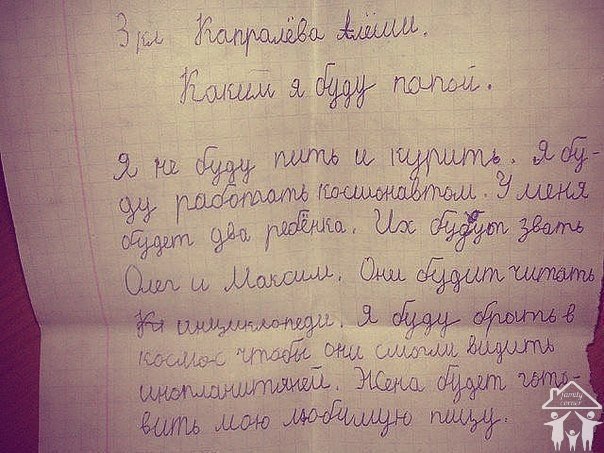 3 кл Капралёва Алёши.
Каким я буду папой.
Я не буду пить и курить. Я бу-
ду работать космонавтом. У меня
будет два ребёнка. Их будут звать
Олег и Максим. Они будит читать
инциклопеди. Я буду брать в
космос чтобы они смогли видить
инопланитяней. Жена будет гото-
вить мою любимую пищу.
family
corner